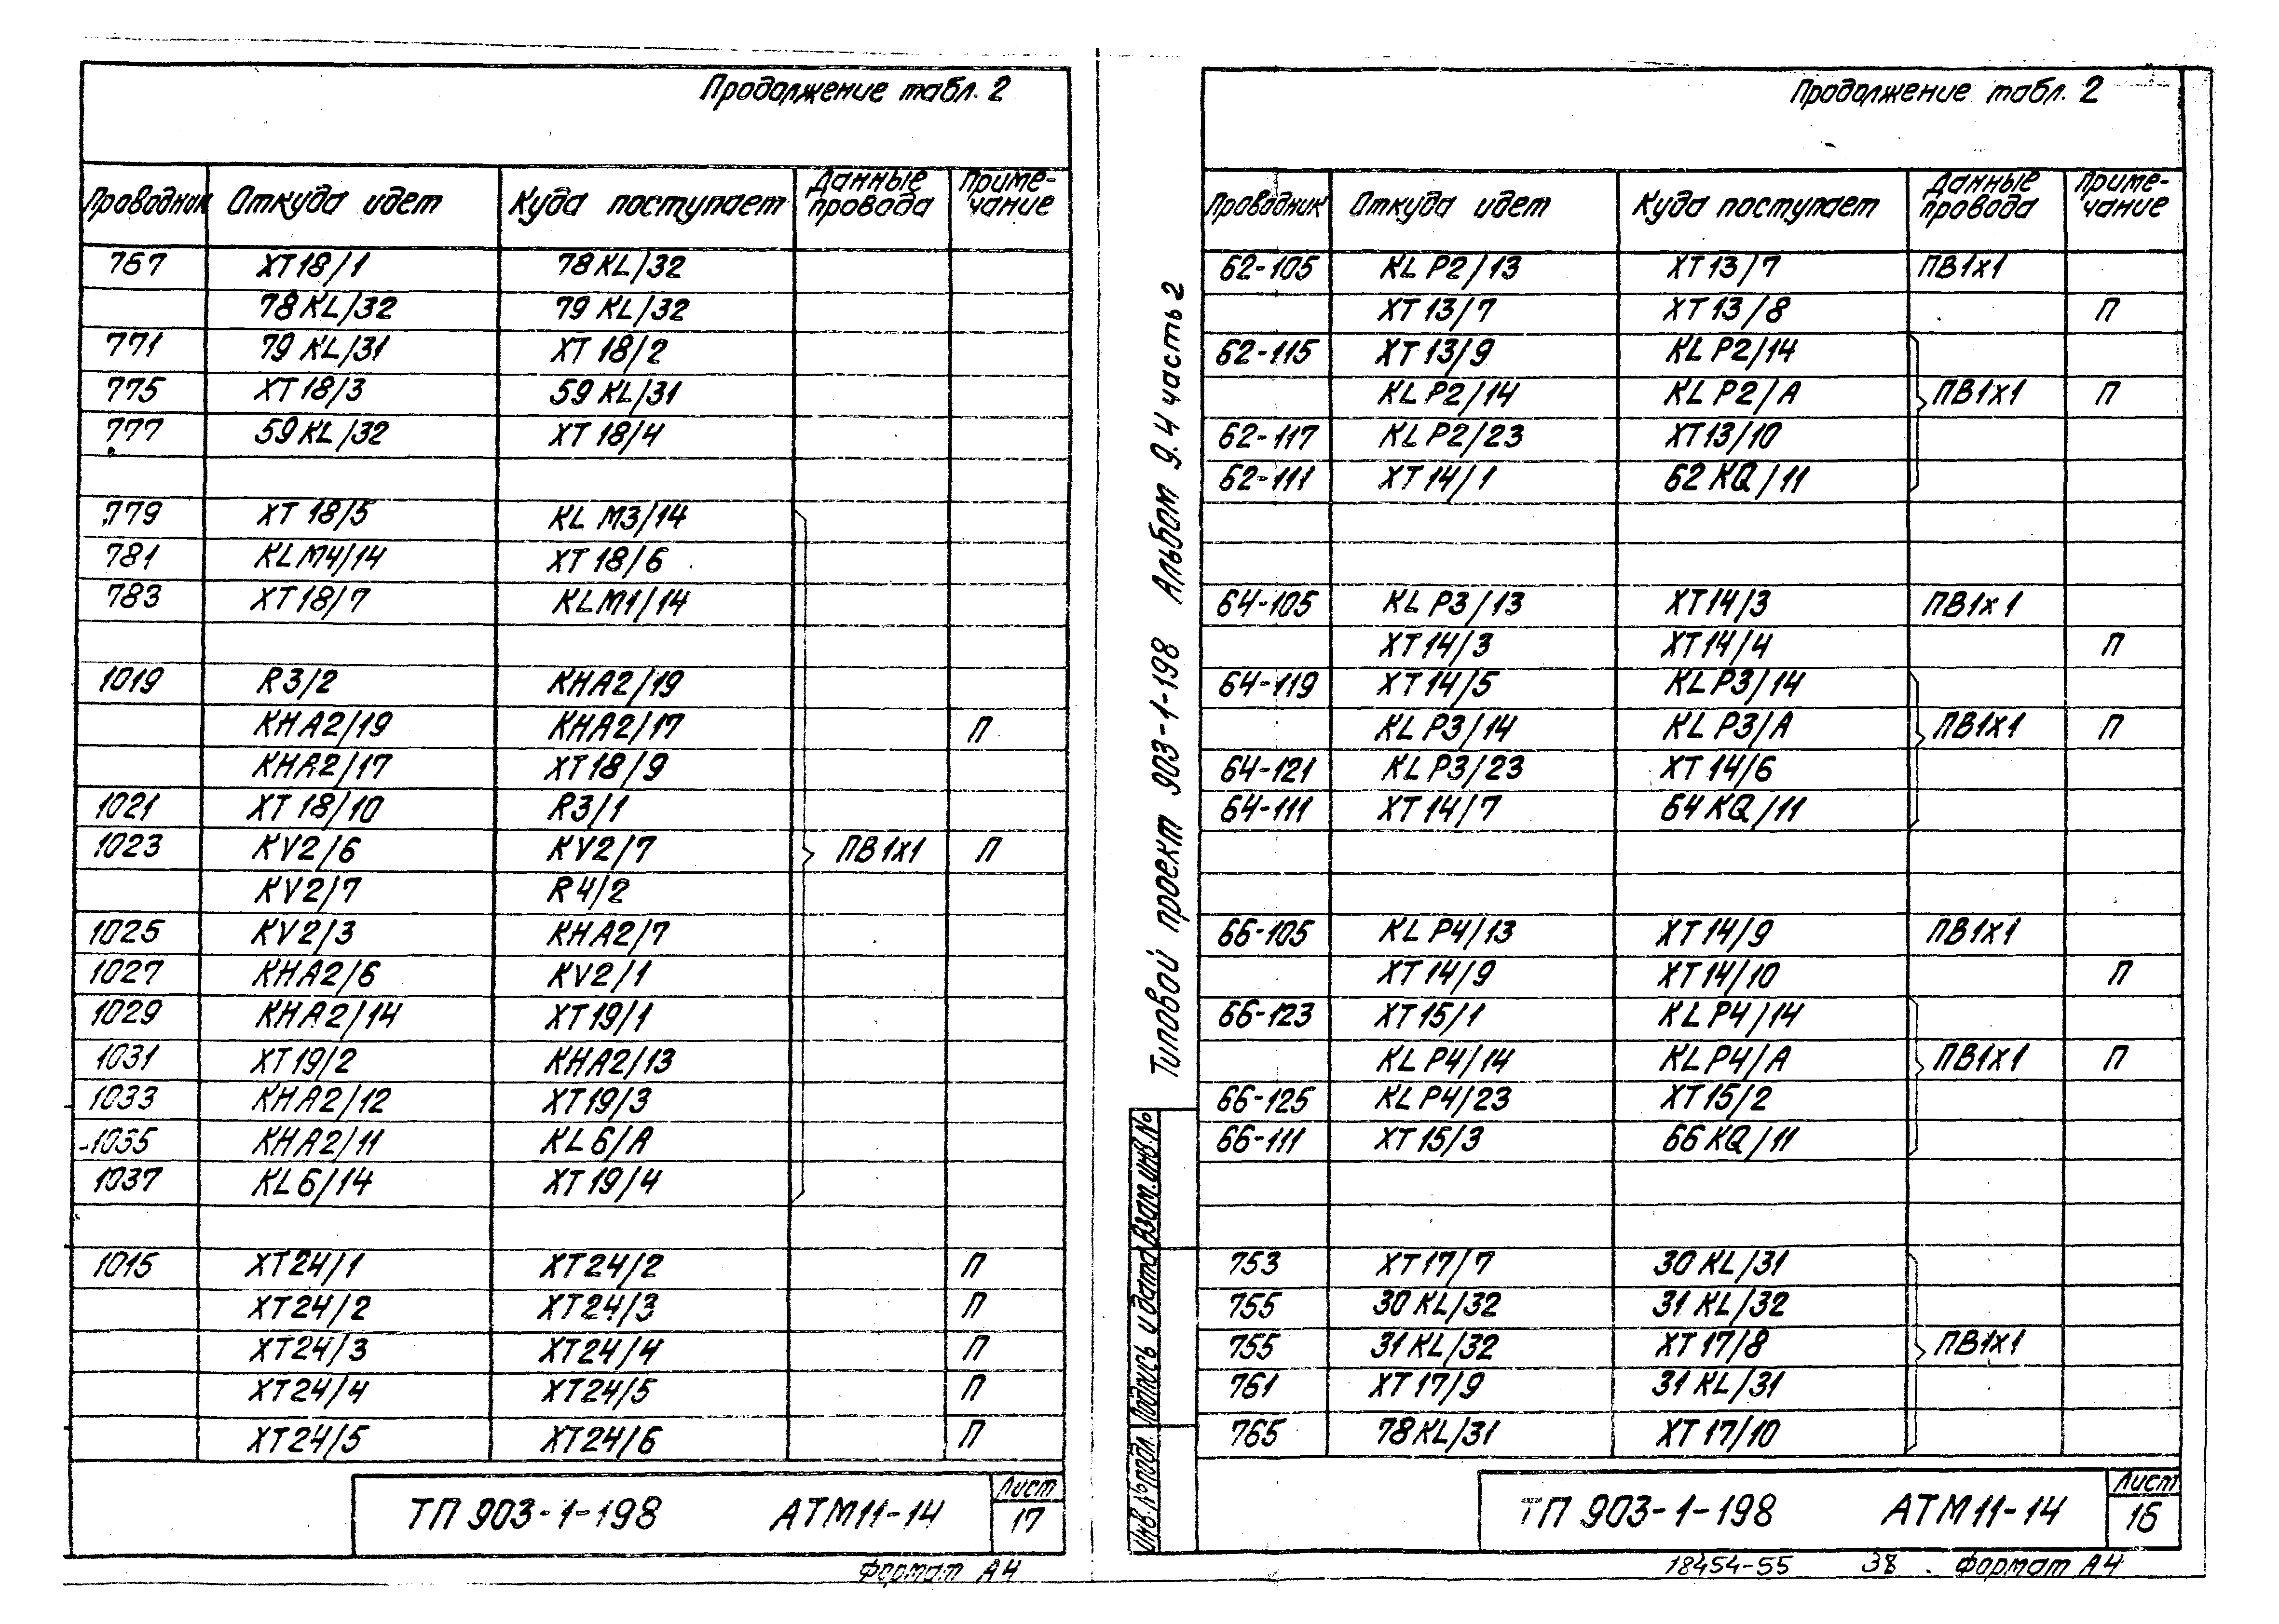 Продолжение табл. 2
Проводник Откуда идет Куда поступает Данные провода Приме-чание
767 XT18/1 78KL/32
78KL/32 79KL/32
771 79KL/31 XT18/2
775 XT18/3 59KL/31
777 59KL/32 XT18/4
779 XT18/5 KLM3/14
781 KLM4/14 XT18/6
783 XT18/7 KLM1/14
1019 R3/2 KHA2/19
KHA2/19 KHA2/17 П
KHA2/17 XT18/9
1021 XT18/10 R3/1
1023 KV2/6 KV2/7 ПВ1х1 П
KV2/7 R4/2
1025 KV2/3 KHA2/7
1027 KHA2/6 KV2/1
1029 KHA2/14 XT19/1
1031 XT19/2 KHA2/13
1033 KHA2/12 XT19/3
1035 KHA2/11 KL6/A
1037 KL6/14 XT19/4
1015 XT24/1 XT24/2 П
XT24/2 XT24/3 П
XT24/3 XT24/4 П
XT24/4 XT24/5 П
XT24/5 XT24/6 П
ТП 903-1-198 АТМ11-14 Лист 17
Формат А4
Типовой проект 903-1-198 Альбом 9.4 часть 2
Инв.№подл. Подпись и дата Взам.инв.№
Продолжение табл. 2
Проводник Откуда идет Куда поступает Данные провода Приме-чание
62-105 KLP2/13 XT13/7 ПВ1х1
XT13/7 XT13/8 П
62-115 XT13/9 KLP2/14
KLP2/14 KLP2/A ПВ1х1 П
62-117 KLP2/23 XT13/10
62-111 XT14/1 62KQ/11
64-105 KLP3/13 XT14/3 ПВ1х1
XT14/3 XT14/4 П
64-119 XT14/5 KLP3/14
KLP3/14 KLP3/A ПВ1х1 П
64-121 KLP3/23 XT14/6
64-111 XT14/7 64KQ/11
66-105 KLP4/13 XT14/9 ПВ1х1
XT14/9 XT14/10 П
66-123 XT15/1 KLP4/14
KLP4/14 KLP4/A ПВ1х1 П
66-125 KLP4/23 XT15/2
66-111 XT15/3 66KQ/11
753 XT17/7 30KL/31
755 30KL/32 31KL/32
755 31KL/32 XT17/8 ПВ1х1
761 XT17/9 31KL/31
765 78KL/31 XT17/10
ТП 903-1-198 АТМ11-14 Лист 16
18454-55 38 Формат А4